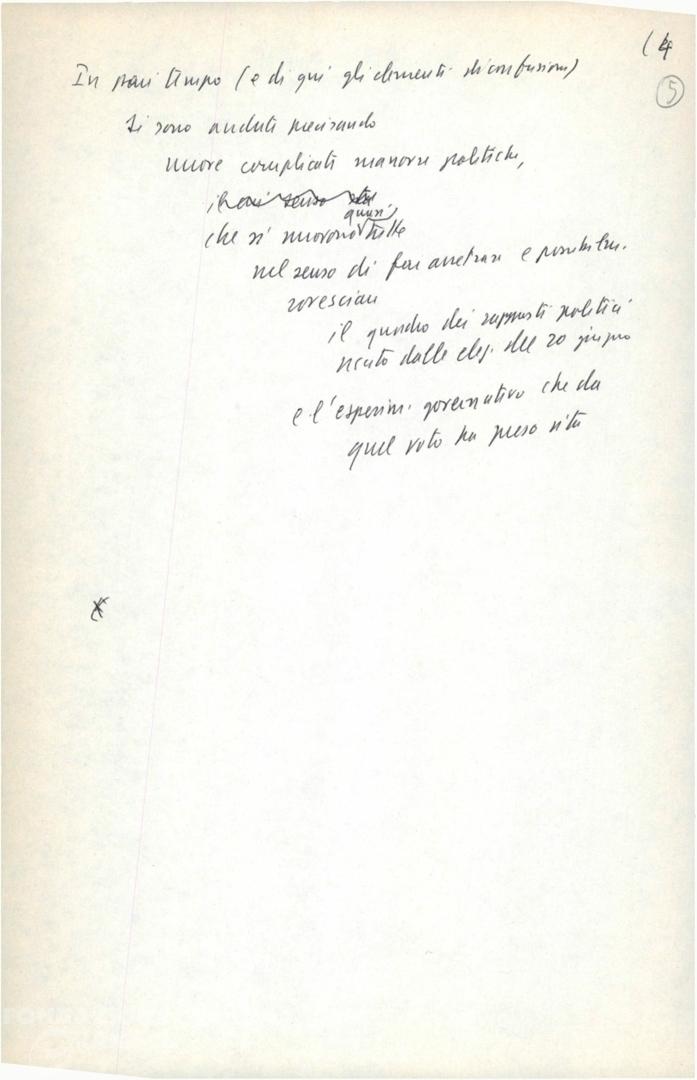 (4
5
In pari tempo (e di qui gli elementi di confusione)
si sono andate precisando
nuove complicate manovre politiche,
il cui senso
quasi
che si muovono tutte
nel senso di far arretrare e possibilm.
rovesciare
il quadro dei rapporti politici
uscito dalle elez. del 20 giugno
e l'esperim. governativo che da
quel voto ha preso vita